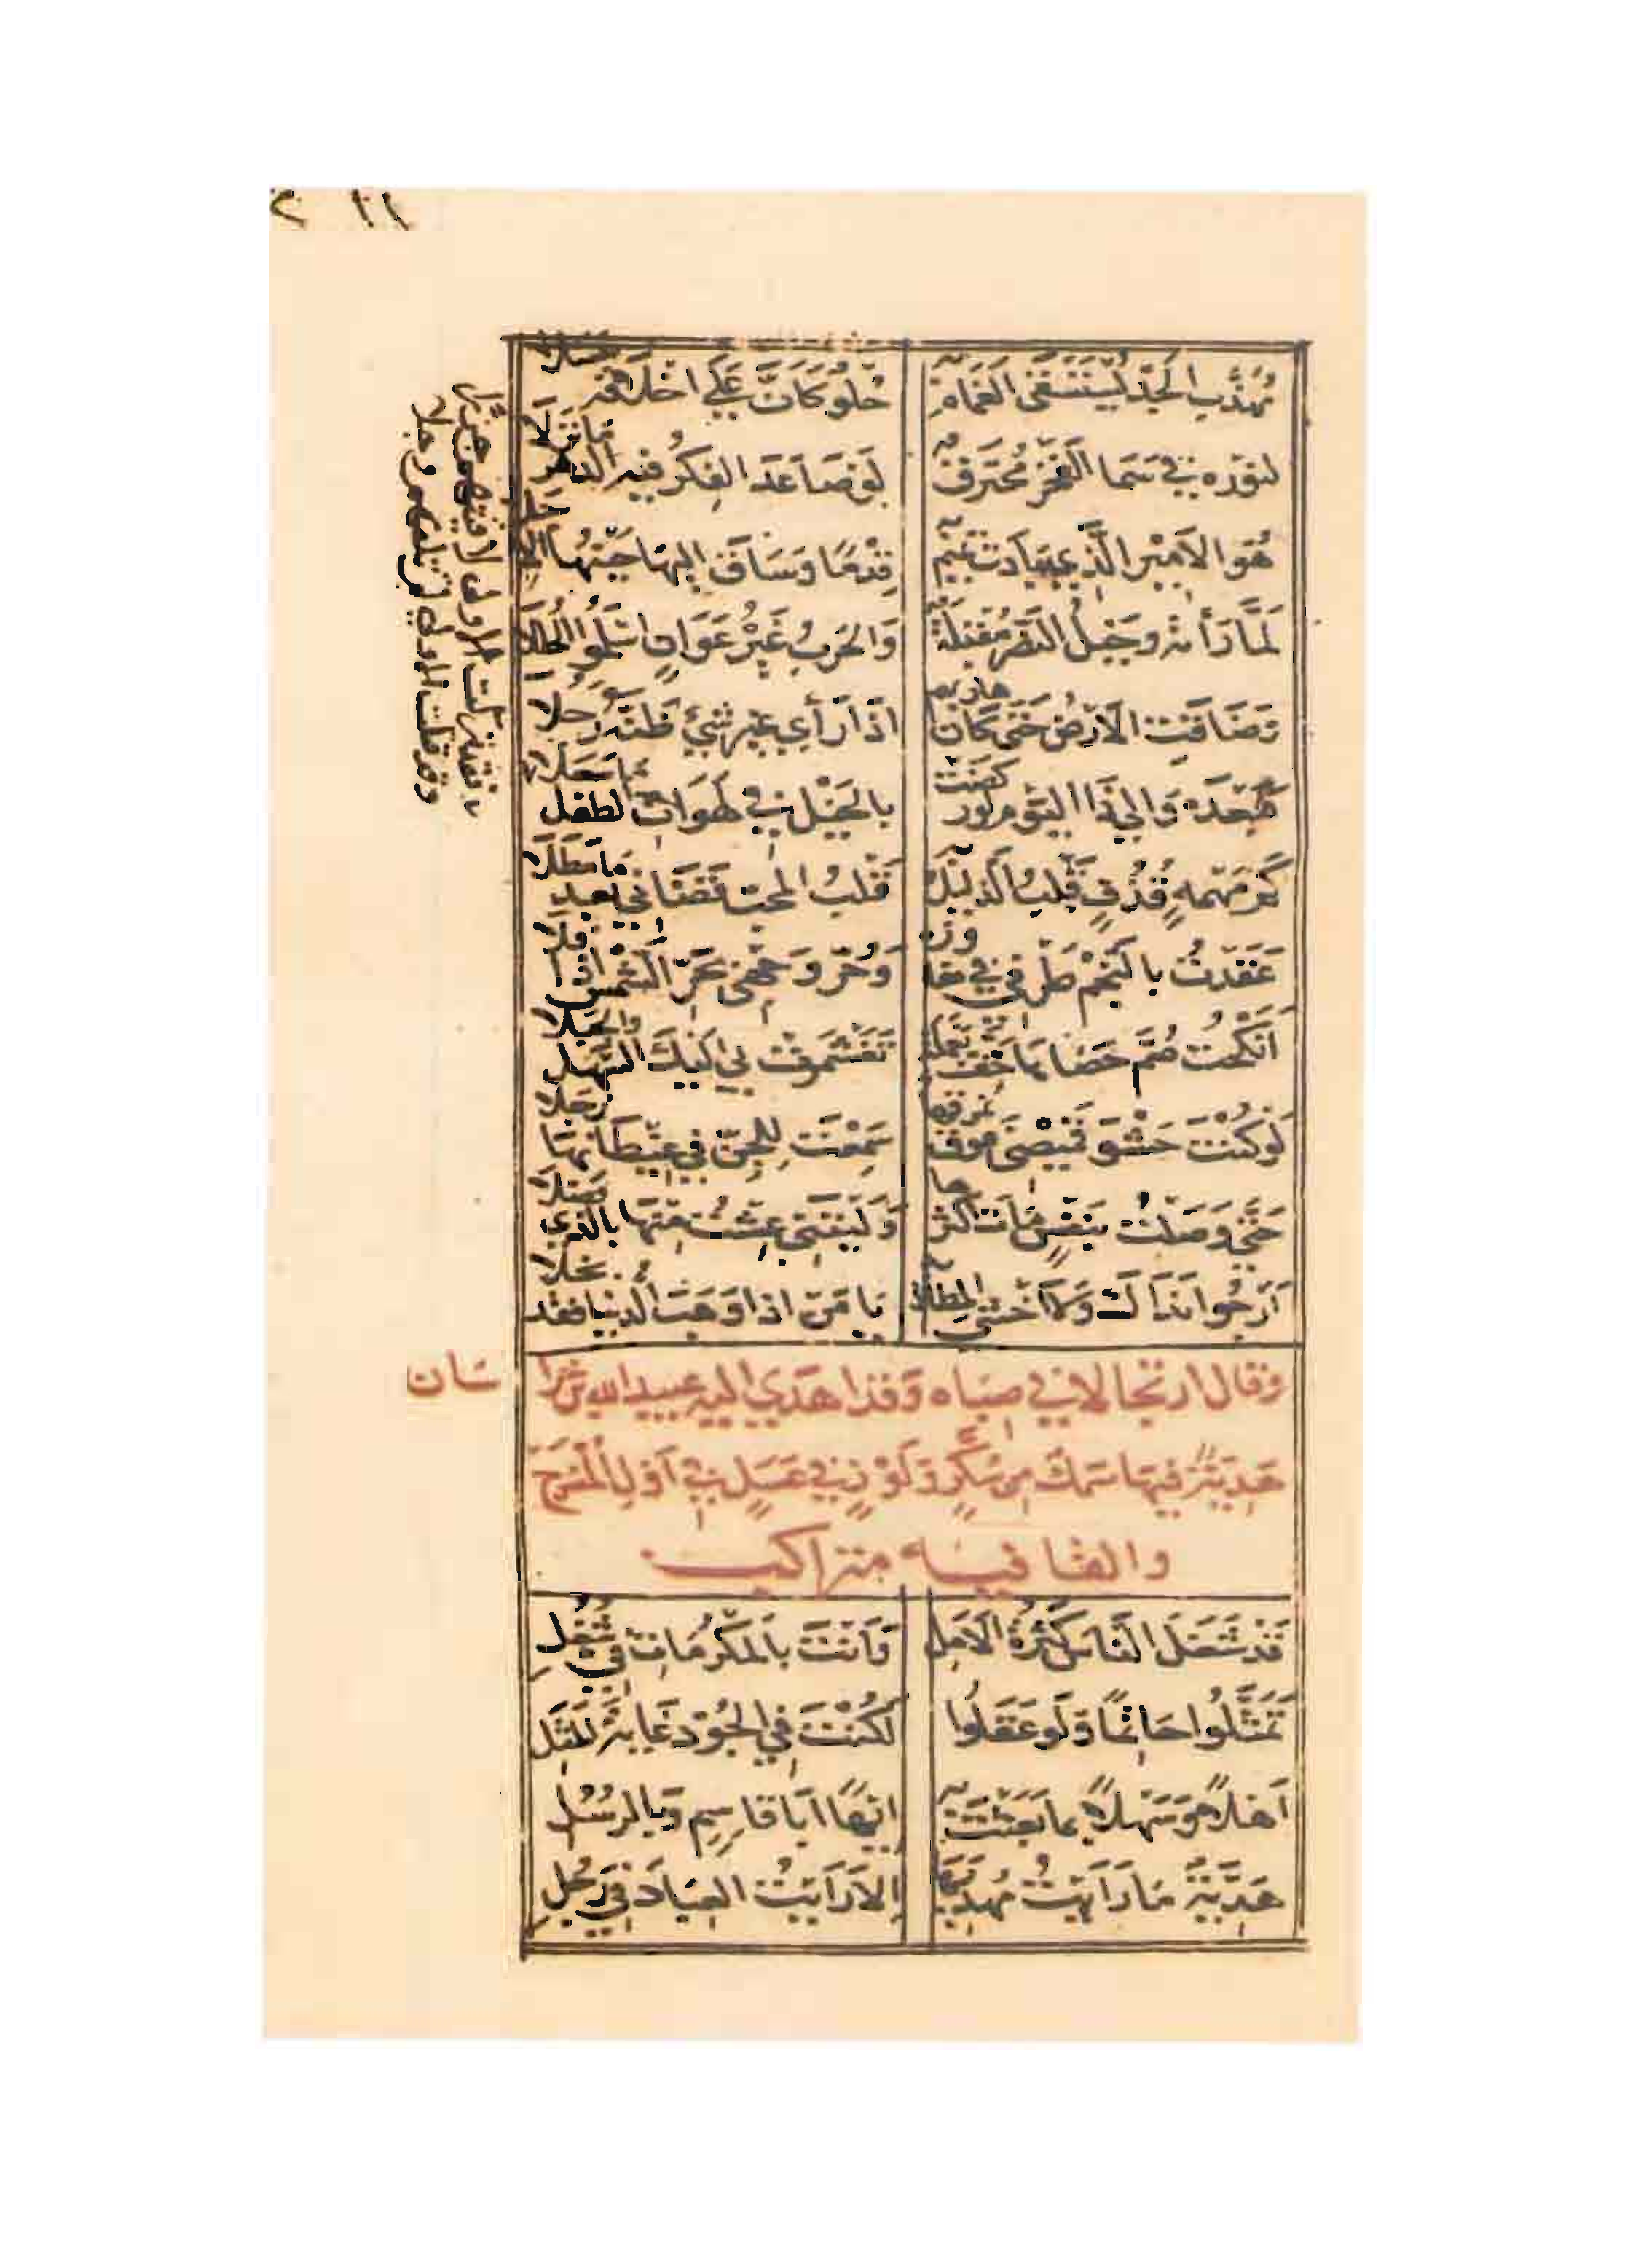 ١١ ٢
مُهَذَّبِ الجَدّ يُسْتَسْقَى الغَمَامُ بِهِ حُلْوٌ كَاَنَّ عَلَي اَخْلَاقهِ عَسَلَا
لنوره في سَمَا الفَخْرِ مُخْتَرَقٌ لَوْ صَاعَدَ الفِكْرُ فيه الدَّهْرَ مَا نَزَلَا
هُوَ الاَمِيْر الَّذي بَادَت تَمِيْمُ بِهِ قِدْمًا وَسَاقَ اِليهَا حَيْنُهَا الاَجَلَا
لَمَّا رَأَتْهُ وَخَيْلُ النَّصْرِ مُقْبِلَةٌ وَالحَربُ غَيْرُ عَوَانٍ اَسْلَمُوا الحِلَلَا
وَضَاقَتِ الاَرْضُ حَتَّى كَانَ هَارِبُهم اِذَا رَأَى غير شَيْءٍ ظَنَّهُ رَجُلَا
فَبَعْدَهُ وَالِي ذَا اليَوْمِ لَو رَكَضَتْ بالخَيْل في لَهَوَاتِ الطفل مَا سَعَلَا
كَمْ مَهْمَهٍ قُذُفٍ قَلْبُ الدَّلِيْل بِهِ قَلْبُ المُحِبّ قَضَاني بعد مَا مَطَلَا
عَقَدْتُ بالنَّجْمِ طَرْفي في مفاوزه وَحُرَّ وَجْهِي بِحَرّ الشَّمْسِ اِذْ اَفَلَا
اَنْكَحْتُ صُمَّ حَصَاهَا خُفَّ يَعْمَلَةٍ تَغَشْمَرَتْ بِي اِلَيْكَ السَّهْلَ وَالجَبَلَا
لَوْ كُنْتَ حَشْوَ قَمِيْصِي فَوْقَ نمرقها سَمِعْتَ لِلْجِنّ فِي غِيْطَانِهَا زَجَلَا
حَتَّي وَصَلْتُ بِنَفْسٍ مَاتَ اَكْثَرُهَا وَلَيْتَنِي عِشْتُ مِنْهَا بِالَّذِي فَضَلَا
اَرْجُوا نَدَاكَ وَلَا اَخْشَى المِطَالَ بِهِ يَا مَنْ اذا وَهَبَ الدنيا فقد بَخِلَا
وَقال ارتجالا في صِبَاه وَقد اهدَي اليه عبيد الله بن خراسان
هَدِيَّةً فيها سَمَك مِن سُكَّرٍ وَلَوْزٍ في عَسَلٍ في اَوَّلِ المُنْسَرح
والقافيه متراكب
قَدْ شَغَلَ النَّاسَ كَثْرَةُ الاَمَلِ وَاَنْتَ بِالمَكْرُمَاتِ فِي شُغُلِ
تَمَثَّلُوا حَاتِمًا وَلَوْ عَقَلُوا لَكُنْتَ فِي الجُوْدِ غَايَةَ المَثَلِ
اَهْلًا وَسَهْلًا بِمَا بَعَثْتَ بِهِ اِيْهًا اَبَا قَاسِمٍ وَبِالرُّسُلِ
هَدِيَّةٌ مَا رَاَيْتُ مُهْدِيَهَا اِلا رَاَيْتُ العِبَادَ فِي رَجُلِ